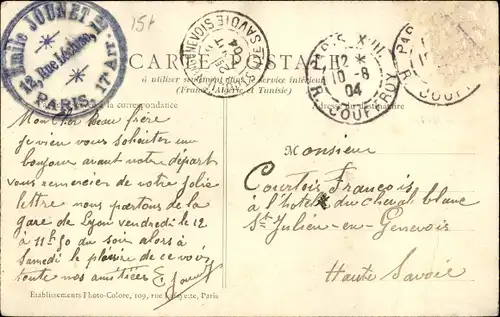 Emile JOUNET
12, Rue Lécluse,
PARIS. 17e ARRt.
15f
CARTE POSTALE
à utiliser seulement dans le service intérieur
(France, Algérie et Tunisie)
SAVOIE
04
PARIS XVII
12 *
10 -8
04
R. COUFFROY
PAR
R. COUFF
la correspondance
Adresse du destinataire
Mon Cher Beau frère
je vien vous souhaiter un
bonjour avant notre départ
vous remercier de votre jolie
lettre nous partons de la
gare de Lyon vendredi le 12
à 11h 50 du soir alors à
Samedi le plaisir de ce voir
toute nos amitiées E. Jounet
Monsieur
Courtois François
à l'hotel du cheval blanc
St Julien-en-Genevois
Haute Savoie
Etablissements Photo-Colore, 109, rue Lafayette, Paris